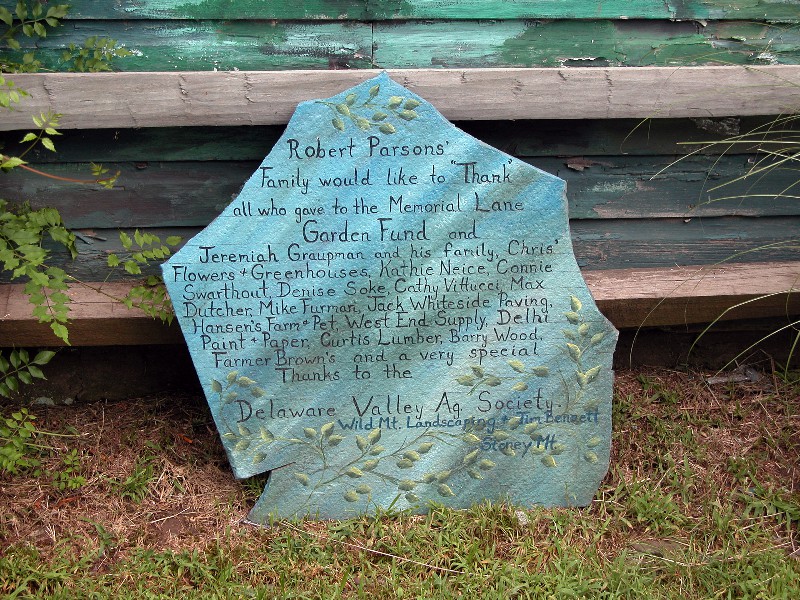 Robert Parsons'
Family would like to "Thank"
all who gave to the Memorial Lane
Garden Fund and
Jeremiah Graupman and his family, Chris'
Flowers + Greenhouses, Kathie Neice, Connie
Swarthout, Denise Soke, Cathy Vittucci, Max
Dutcher, Mike Furman, Jack Whiteside Paving,
Hansen's Farm + Pet, West End Supply, Delhi
Paint + Paper, Curtis Lumber, Barry Wood,
Farmer Brown's and a very special
Thanks to the
Delaware Valley Ag. Society
Wild Mt. Landscaping + Tim Bennett
Stoney Mt.